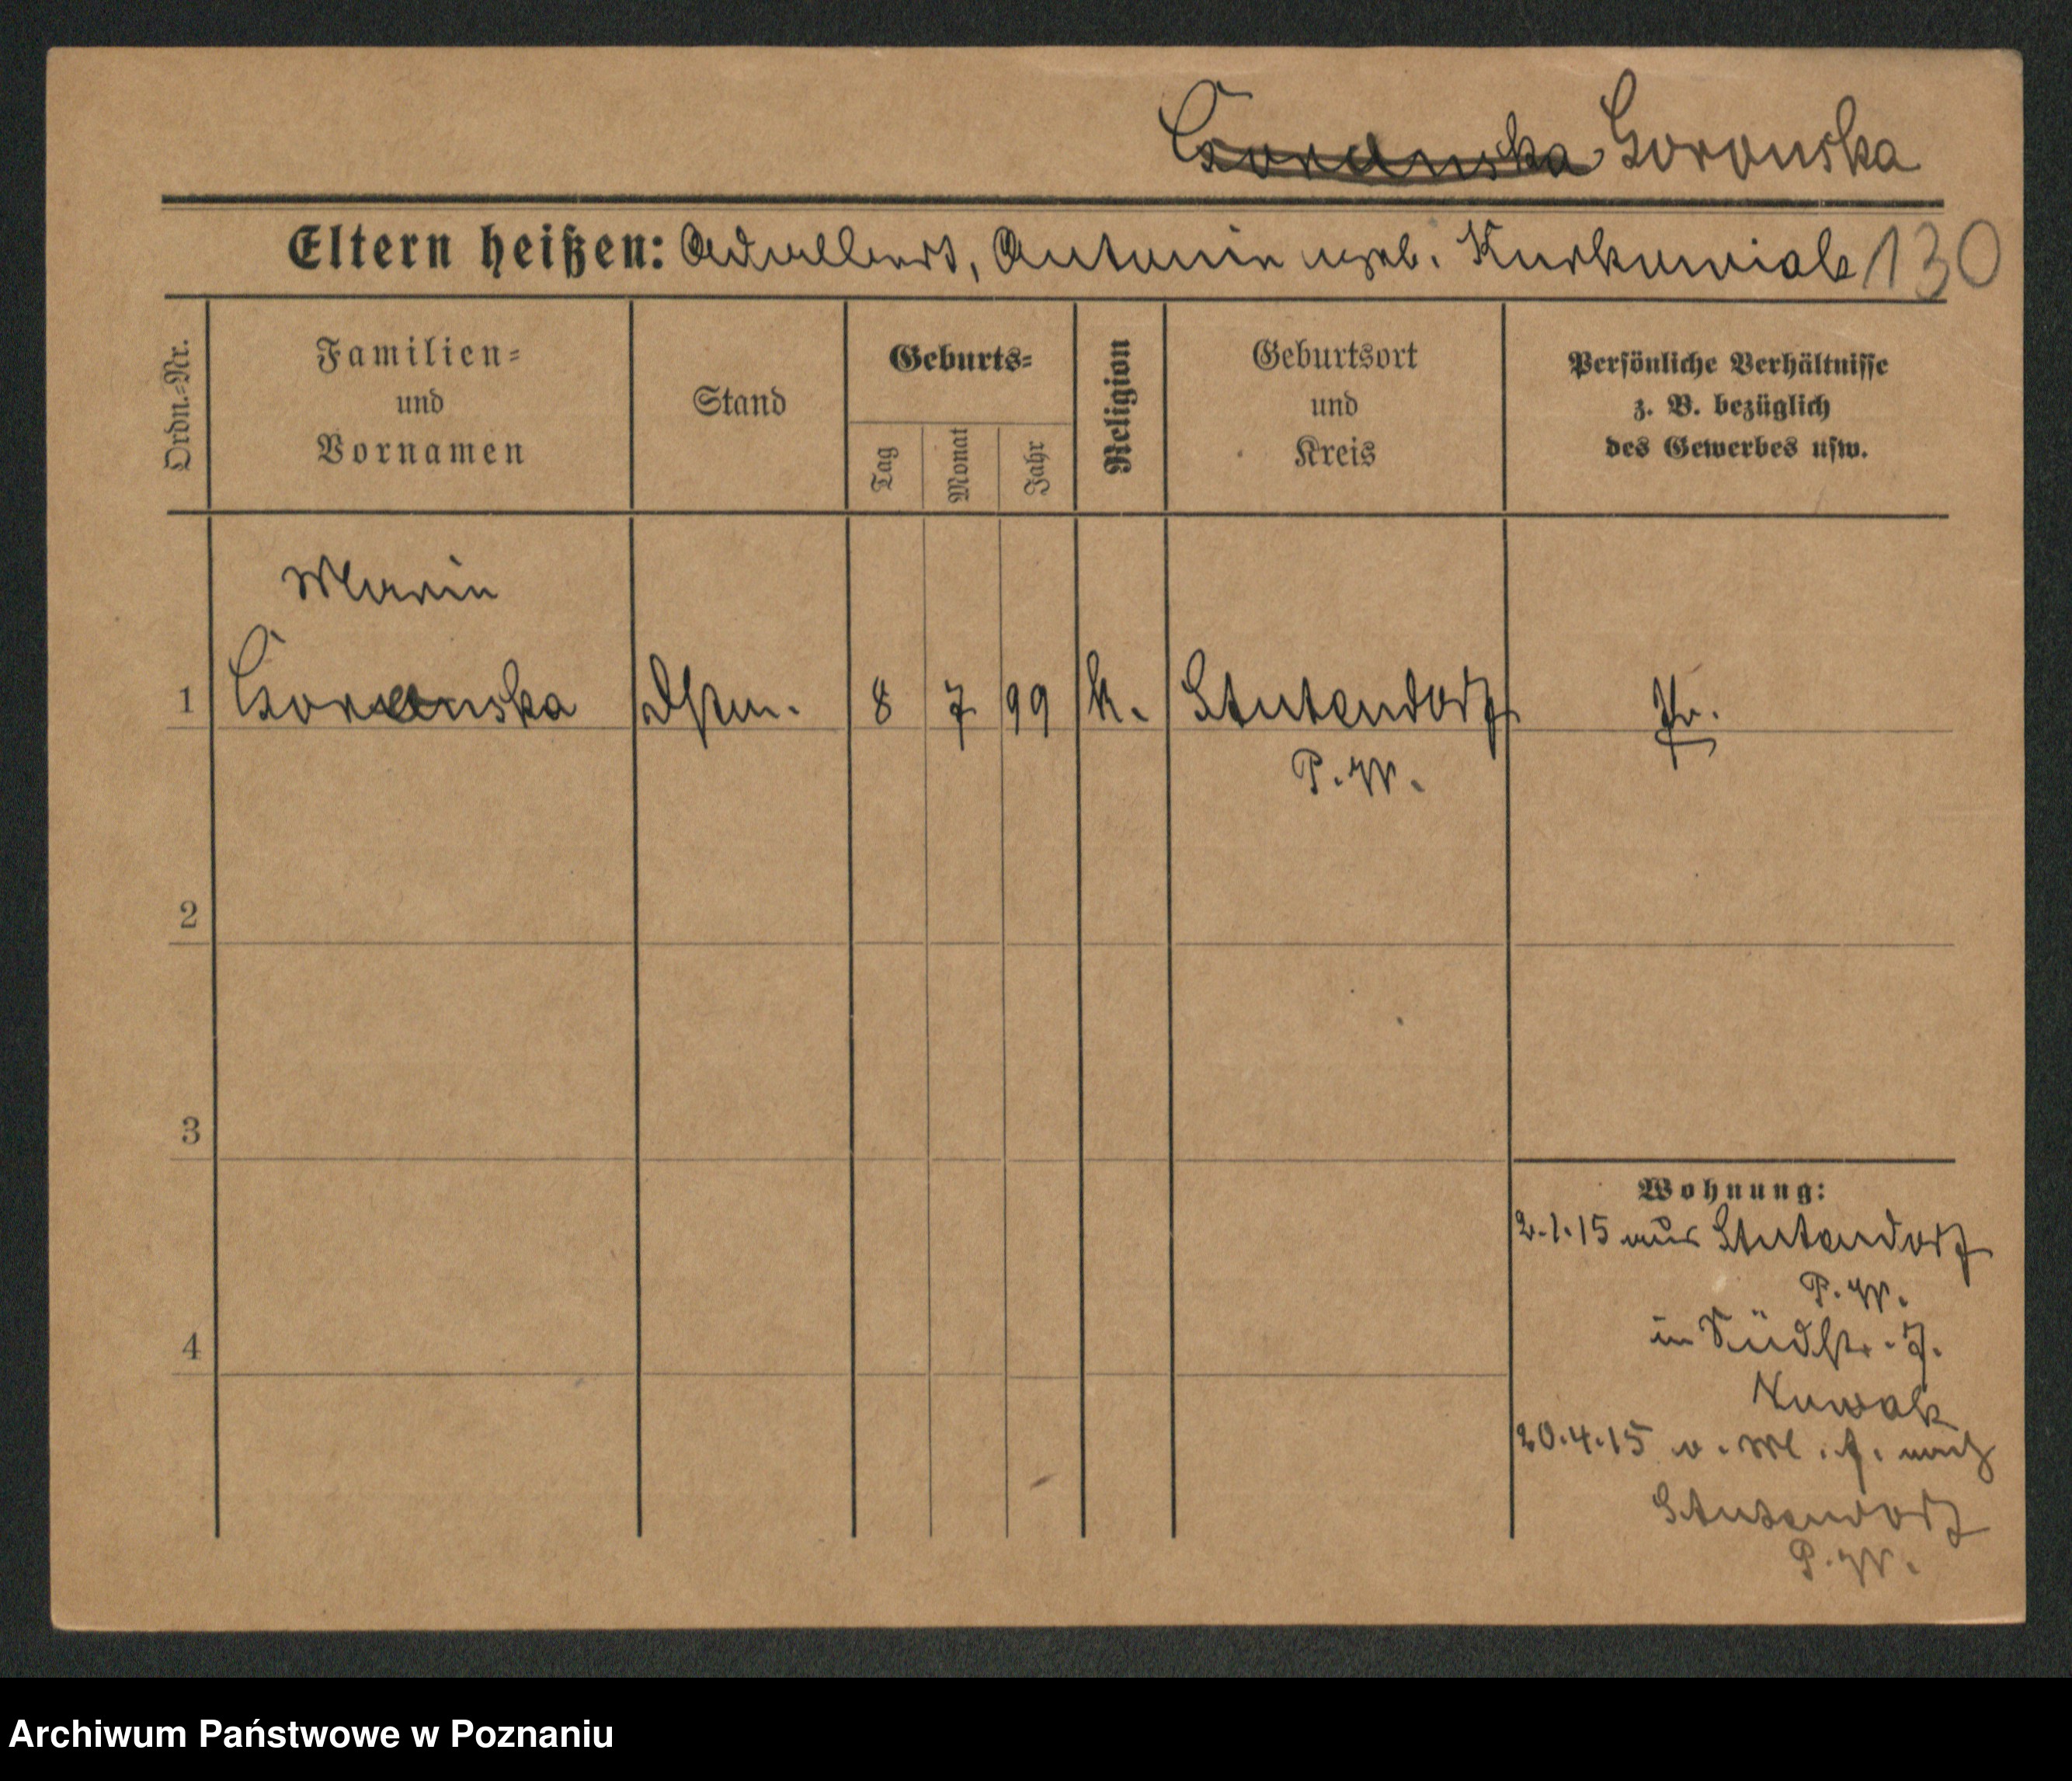 Goronska
Eltern heißen: Adalbert, Antonie geb. Kurkowiak 130
Ordn.-Nr.
Familien-
und
Vornamen
Stand
Geburts-
Tag
Monat
Jahr
Religion
Geburtsort
und
Kreis
Persönliche Verhältnisse
z. B. bezüglich
des Gewerbes usw.
Marie
1 Goronska Dstm. 8 7 99 k. Stutendorf Pr.
P. W.
2
3
4
Wohnung:
2.1.15 aus Stutendorf
P. W.
in Südstr. 7.
Nowak
20.4.15 v. M. f. nach
Stutendorf
P. W.
Archiwum Państwowe w Poznaniu